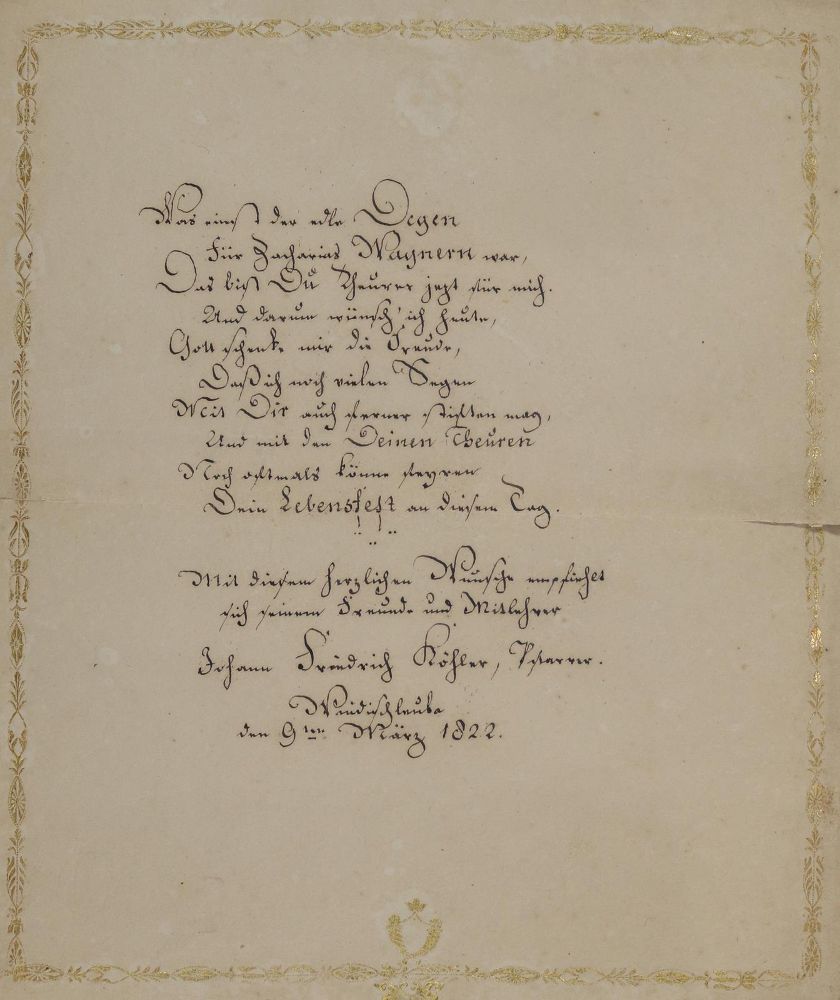 Was einst der edle Degen
Für Zacharias Wagnern war,
Das bist Du Theurer jezt für mich.
Und darum wünsch' ich heute,
Gott schenke mir die Freude,
Daß ich noch vielen Segen
Mit Dir auch ferner stiften mag,
Und mit den Deinen Theuren
Noch oftmals könne feyren
Dein Lebensfest an diesem Tag.
Mit diesem herzlichen Wunsche empfiehet
sich seinem Freunde und Mitlehrer
Johann Friedrich Köhler, Pfarrer.
Windischleuba
den 9ten März 1822.